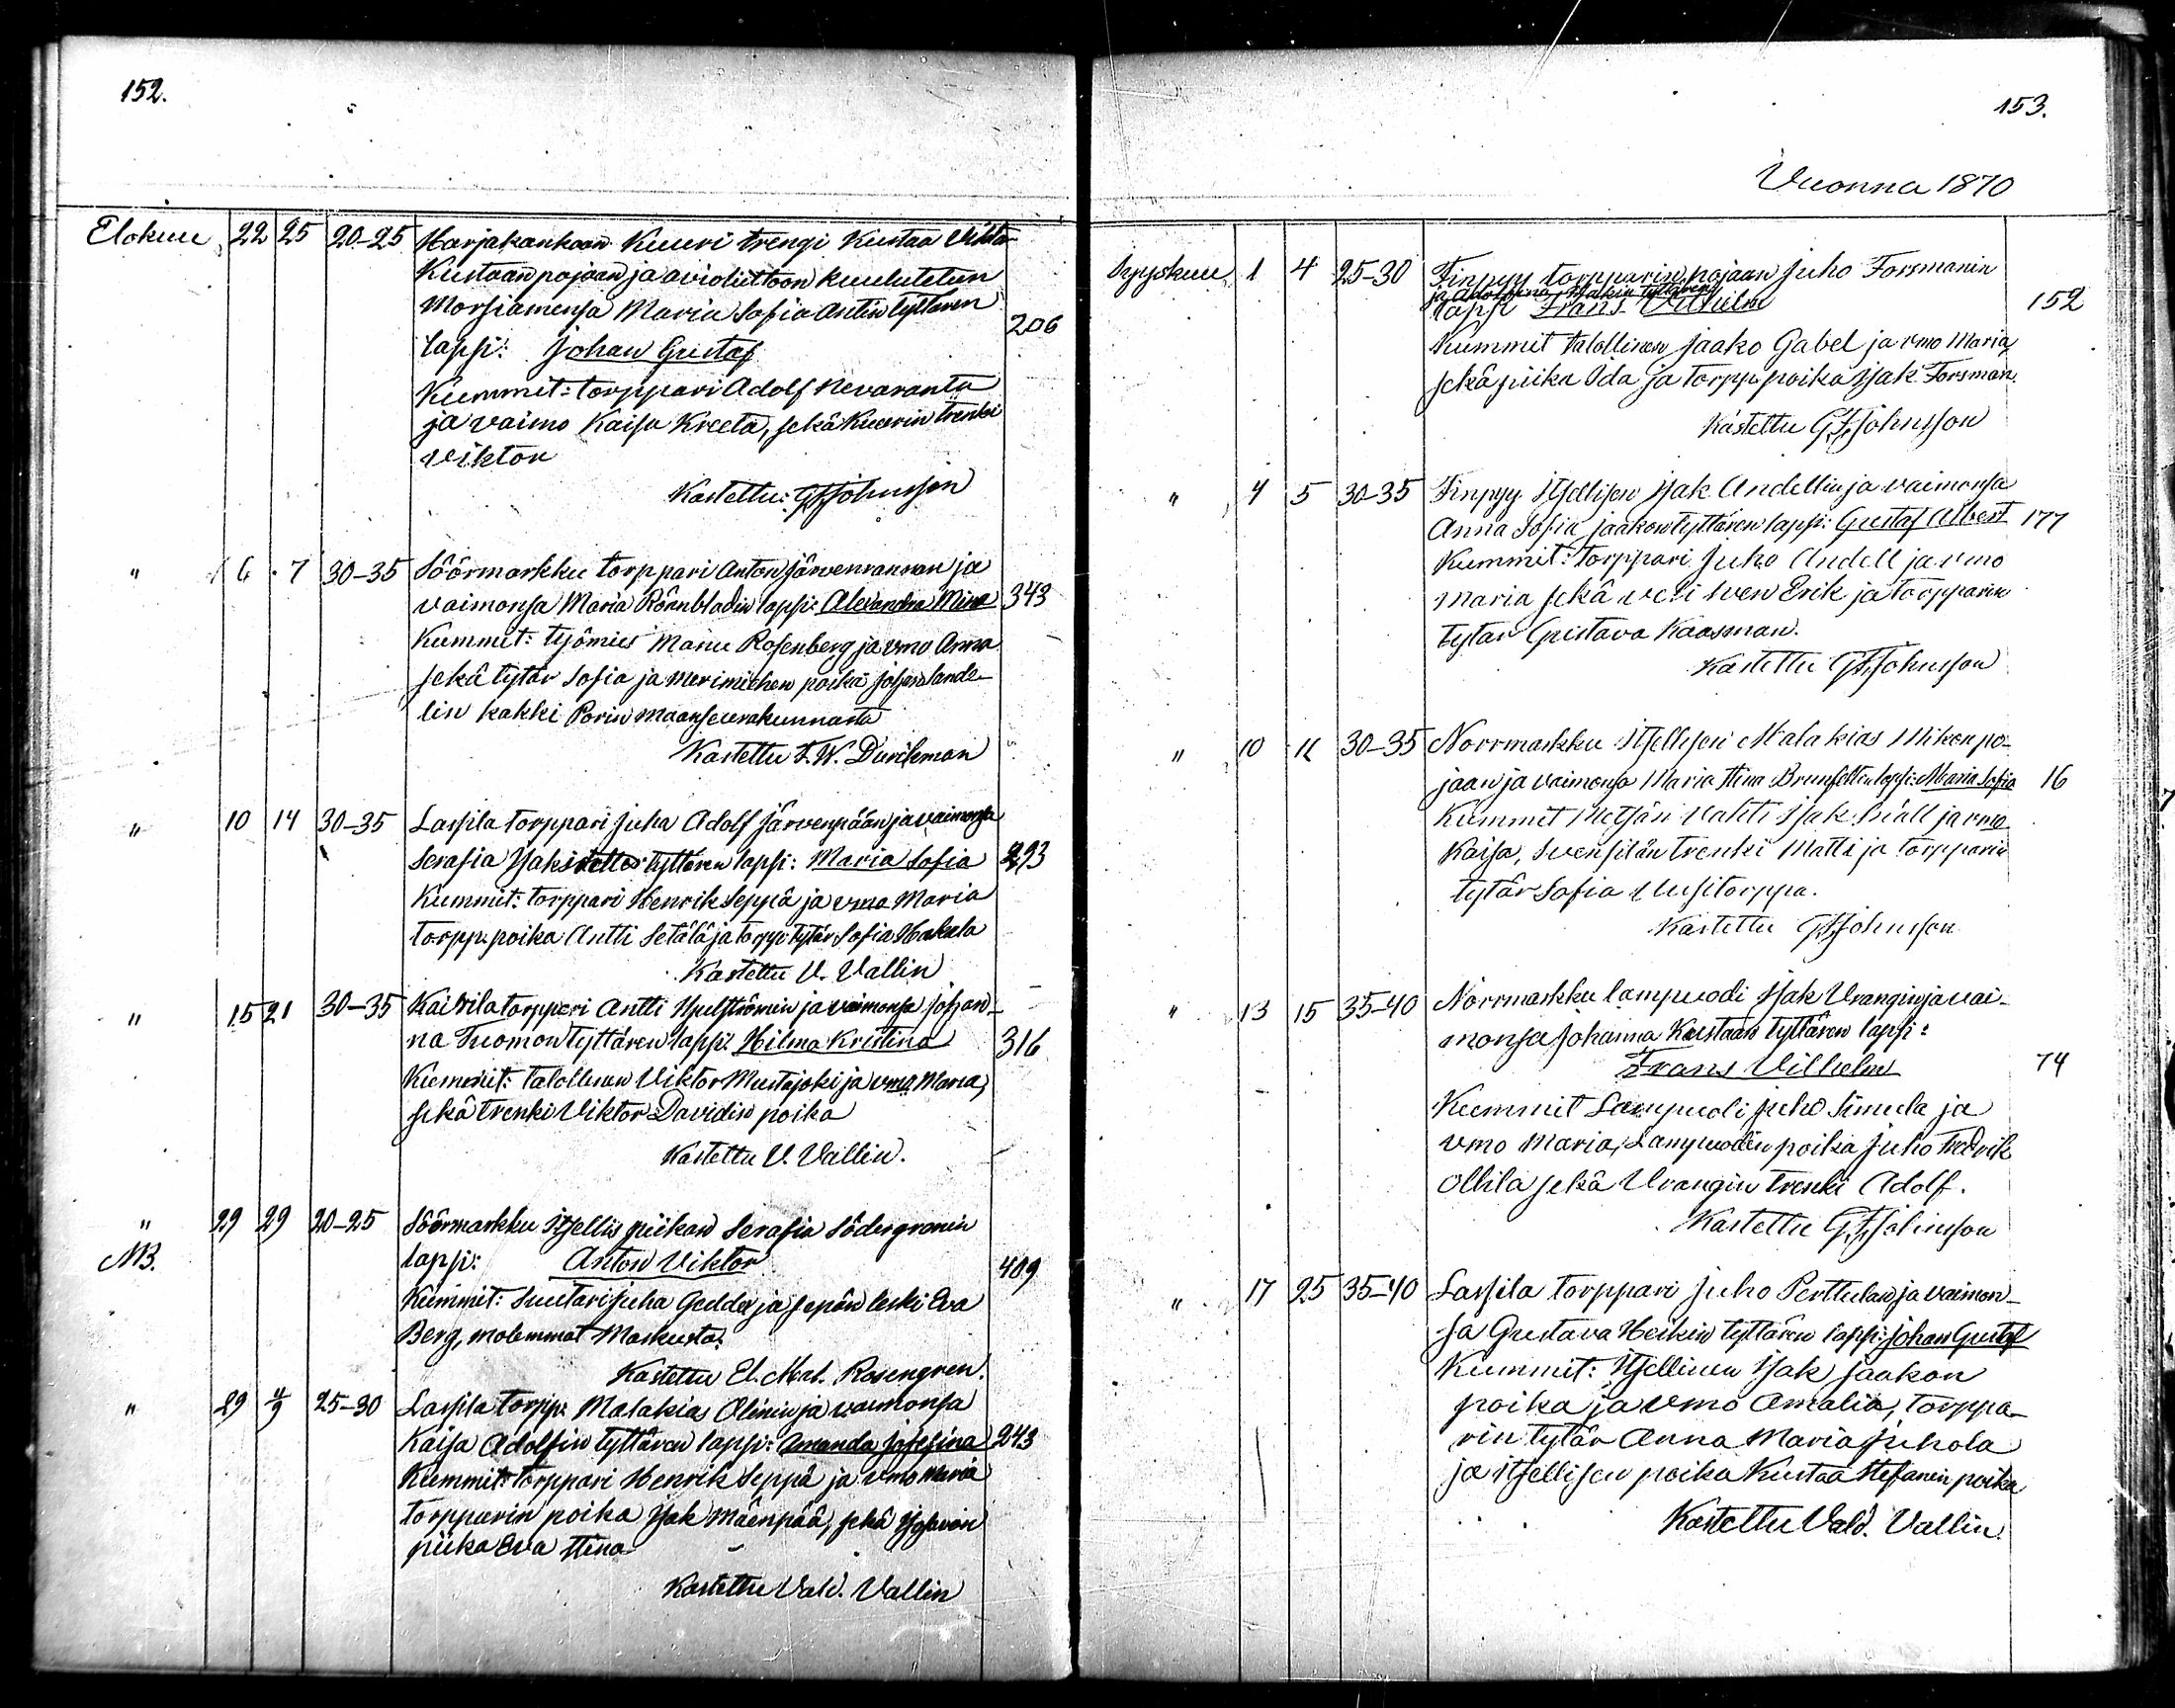 152.
Elokuu 22 25 20-25 Harjakankaan Kuuri trengi Kustaa Viktor
Kustaanpojaan ja avioliittoon kuulutetun
Morsiamensa Maria Sofia Antin tyttären
206
lapsi: Johan Gustaf
Kummit: torppari Adolf Nevaranta
ja vaimo Kaisa Kreeta, sekä Kuurin trenki
Viktor
Kastettu: G.F. Johnsson
" 6 7 30-35 Söörmarkku torppari Anton Järvenrannan ja
vaimonsa Maria Rönnbladin lapsi: Alexandra Mina 343
Kummit: työmies Manu Rosenberg ja vmo Anna
sekä tytär Sofia ja Merimiehen poika Johan Lande-
lin kakki Porin maanseurakunnasta
Kastettu F.W. Durchman
" 10 14 30-35 Lassila torppari Juha Adolf Järvenpään ja vaimonsa
Serafia Isakin tyttären lapsi: Maria Sofia 293
Kummit: torppari Henrik Seppä ja vmo Maria
torpp. poika Antti Setälä ja torpp. tytär Sofia Hakala
Kastettu V. Vallin
" 15 21 30-35 Kairila torppari Antti Hjultströmin ja vaimonsa Johan-
na Tuomon tyttären lapsi: Hilma Kristina 316
Kummit: talollinen Viktor Mustajoki ja vmo Maria,
sekä trenki Viktor Davidin poika
Kastettu V. Vallin.
" 29 29 20-25 Söörmarkku Itsellis piikan Serafia Södergranin
NB. lapsi: Anton Viktor 409
Kummit: Suutari Juha Gedda ja sepän leski Eva
Berg, molemmat Markusta.
Kastettu El. Mrl. Rosengren.
" 29 4/9 25-30 Lassila torpp: Malakias Olinin ja vaimonsa
Kaisa Adolfin tyttären lapsi: Amanda Josefina 243
Kummit: torppari Henrik Seppä ja vmo Maria
torpparin poika Isak Mäenpää, sekä
piika Eva Stina
Kastettu Vald. Vallin
153.
Vuonna 1870
Syyskuu 1 4 25-30 Finpyy torpparin pojaan Juho Forsmanin
ja Isakin tyttären
lapsi Frans Vilhelm 152
Kummit talollinen Jaako Gabel ja vmo Maria,
sekä piika Ida ja torpp. poika Isak Forsman.
Kastettu G.F. Johnsson
" 4 5 30-35 Finpyy Itsellisen Isak Andellin ja vaimonsa
Anna Sofia Jaakon tyttären lapsi: Gustaf Albert 177
Kummit: torppari Juho Andell ja vmo
Maria sekä veli Sven Erik ja torpparin
tytär Gustava Kaasman.
Kastettu G.F. Johnsson
" 10 11 30-35 Norrmarkku Itsellisen Malakias Mikon po-
jaan ja vaimonsa Maria Stina Brunfeltin lapsi: Maria Sofia 16
Kummit Metsän vahti Isak ja vmo
Kaisa, Svensilän trenki Matti ja torpparin
tytär Sofia Uusitorppa.
Kastettu G.F. Johnsson
" 13 15 35-40 Norrmarkku lampuodi Isak Vrangin ja vai-
monsa Johanna Kustaan tyttären lapsi:
Frans Vilhelm 74
Kummit Lampuoli Juho Simula ja
vmo Maria, Lampuodin poika Juho Fredrik
Ollila sekä Vrangin trenki Adolf.
Kastettu G.F. Johnsson
" 17 25 35-40 Lassila torppari Juho Perttulan ja vaimon-
sa Gustava Heikin tyttären lapsi: Johan Gustaf
Kummit: Itsellinen Isak Jaakon
poika ja vmo Amalia, torppa-
rin tytär Anna Maria Juhola
ja itsellisen poika Kustaa Stefanin poika
Kastettu Vald. Vallin.